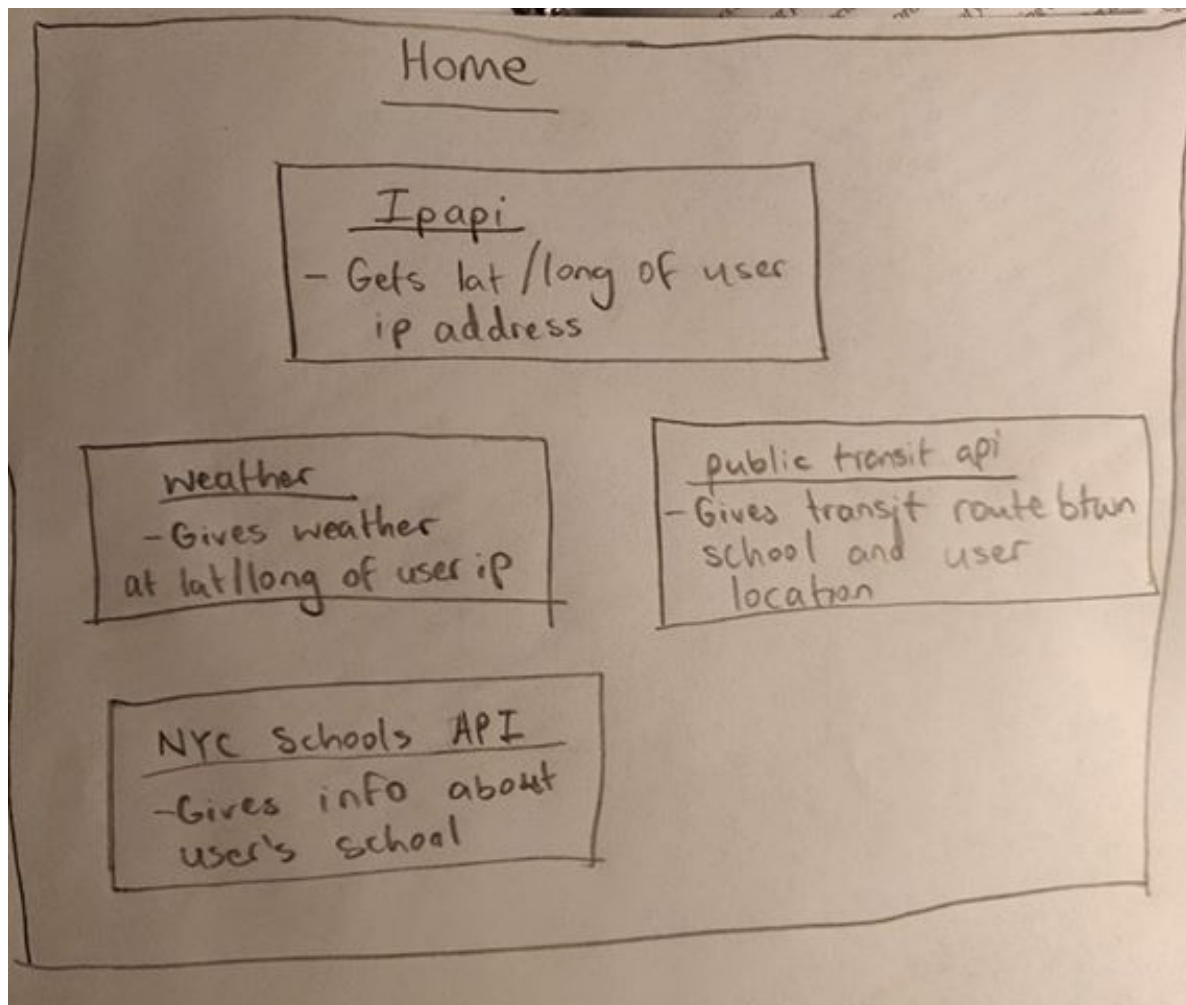 Home
Ipapi
- Gets lat/long of user
ip address
weather
- Gives weather
at lat/long of user ip
public transit api
- Gives transit route btwn
school and user
location
NYC Schools API
- Gives info about
user's school